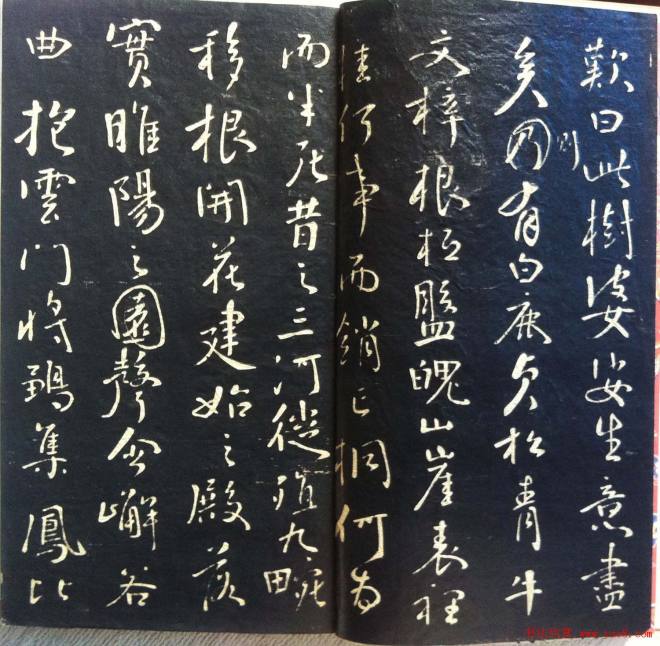 歎曰此樹婆娑生意盡
矣則有白鹿貞松青牛
文梓根柢盤魄山崖表裡
桂何事而銷亡桐何為
而半死昔之三河徙殖九畹
移根開花建始之殿落
實睢陽之園聲含嶰谷
曲抱雲門將鶵集鳳比